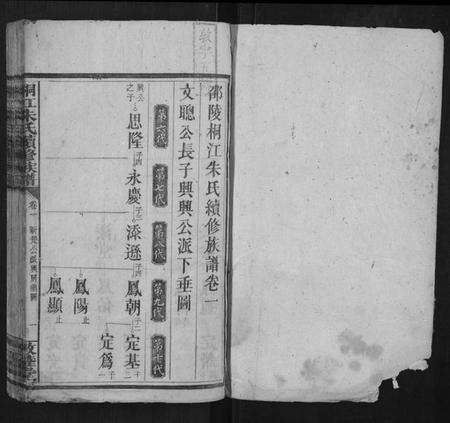 邵陵桐江朱氏續修族譜卷一
文聰公長子興興公派下垂圖
第六代
第七代
第八代
第九代
第十代
興公之子
思隆
永慶
添遜
鳳朝
定基
定為
鳳陽 止
鳳顯 止
桐江朱氏續修族譜
卷一
一